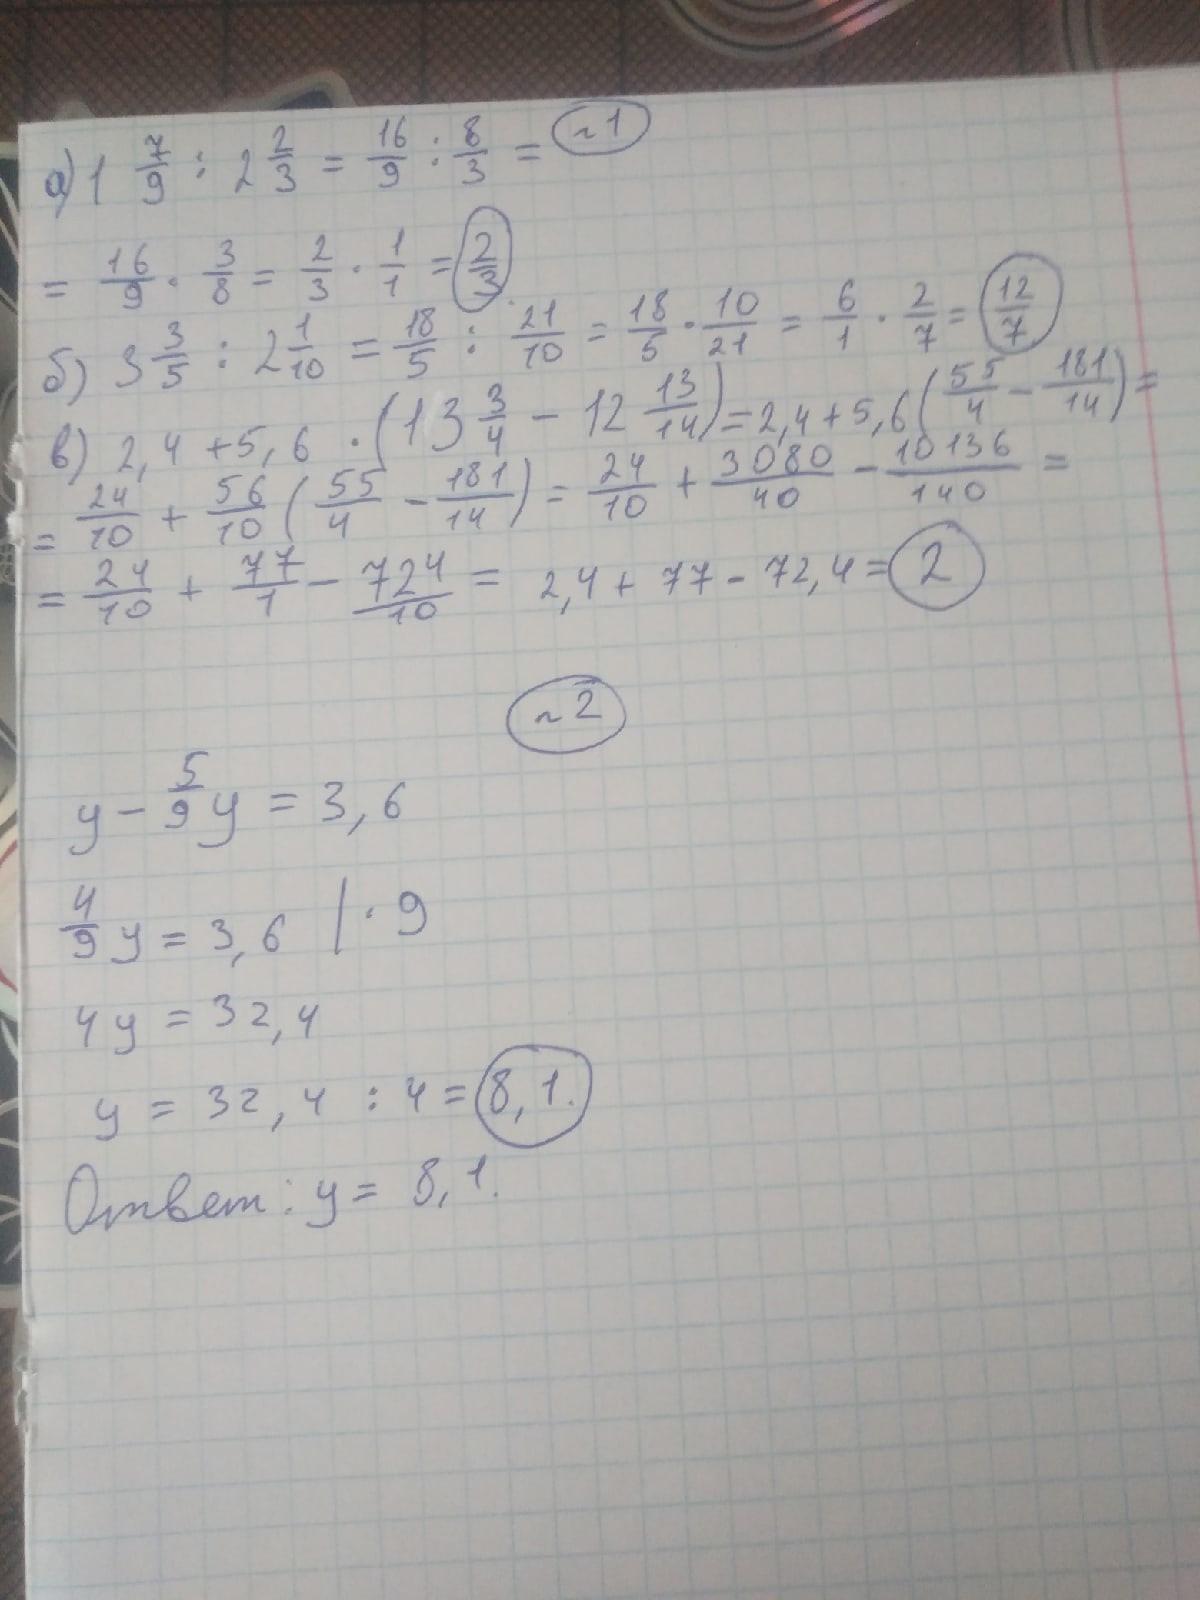 ~1
а) 1 7/9 : 2 2/3 = 16/9 : 8/3 =
= 16/9 · 3/8 = 2/3 · 1/1 = 2/3
б) 3 3/5 : 2 1/10 = 18/5 : 21/10 = 18/5 · 10/21 = 6/1 · 2/7 = 12/7
в) 2,4 + 5,6 · (13 3/4 - 12 13/14) = 2,4 + 5,6 (55/4 - 181/14) =
= 24/10 + 56/10 (55/4 - 181/14) = 24/10 + 3080/40 - 10136/140 =
= 24/10 + 77/1 - 724/10 = 2,4 + 77 - 72,4 = 2
~2
y - 5/9 y = 3,6
4/9 y = 3,6 | · 9
4y = 32,4
y = 32,4 : 4 = 8,1.
Ответ: y = 8,1.